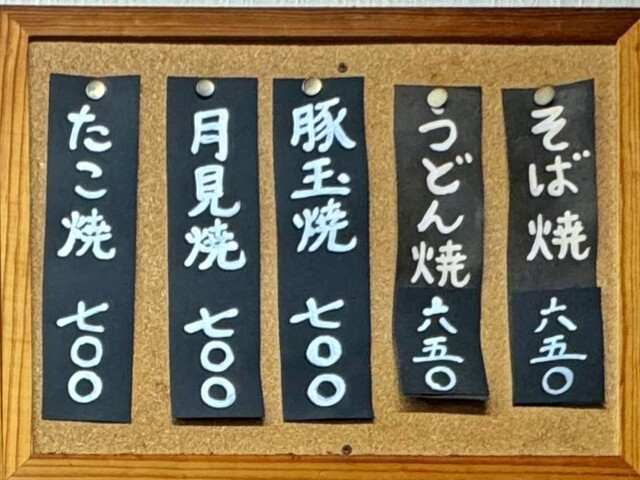 そば焼 六五〇
うどん焼 六五〇
豚玉焼 七〇〇
月見焼 七〇〇
たこ焼 七〇〇